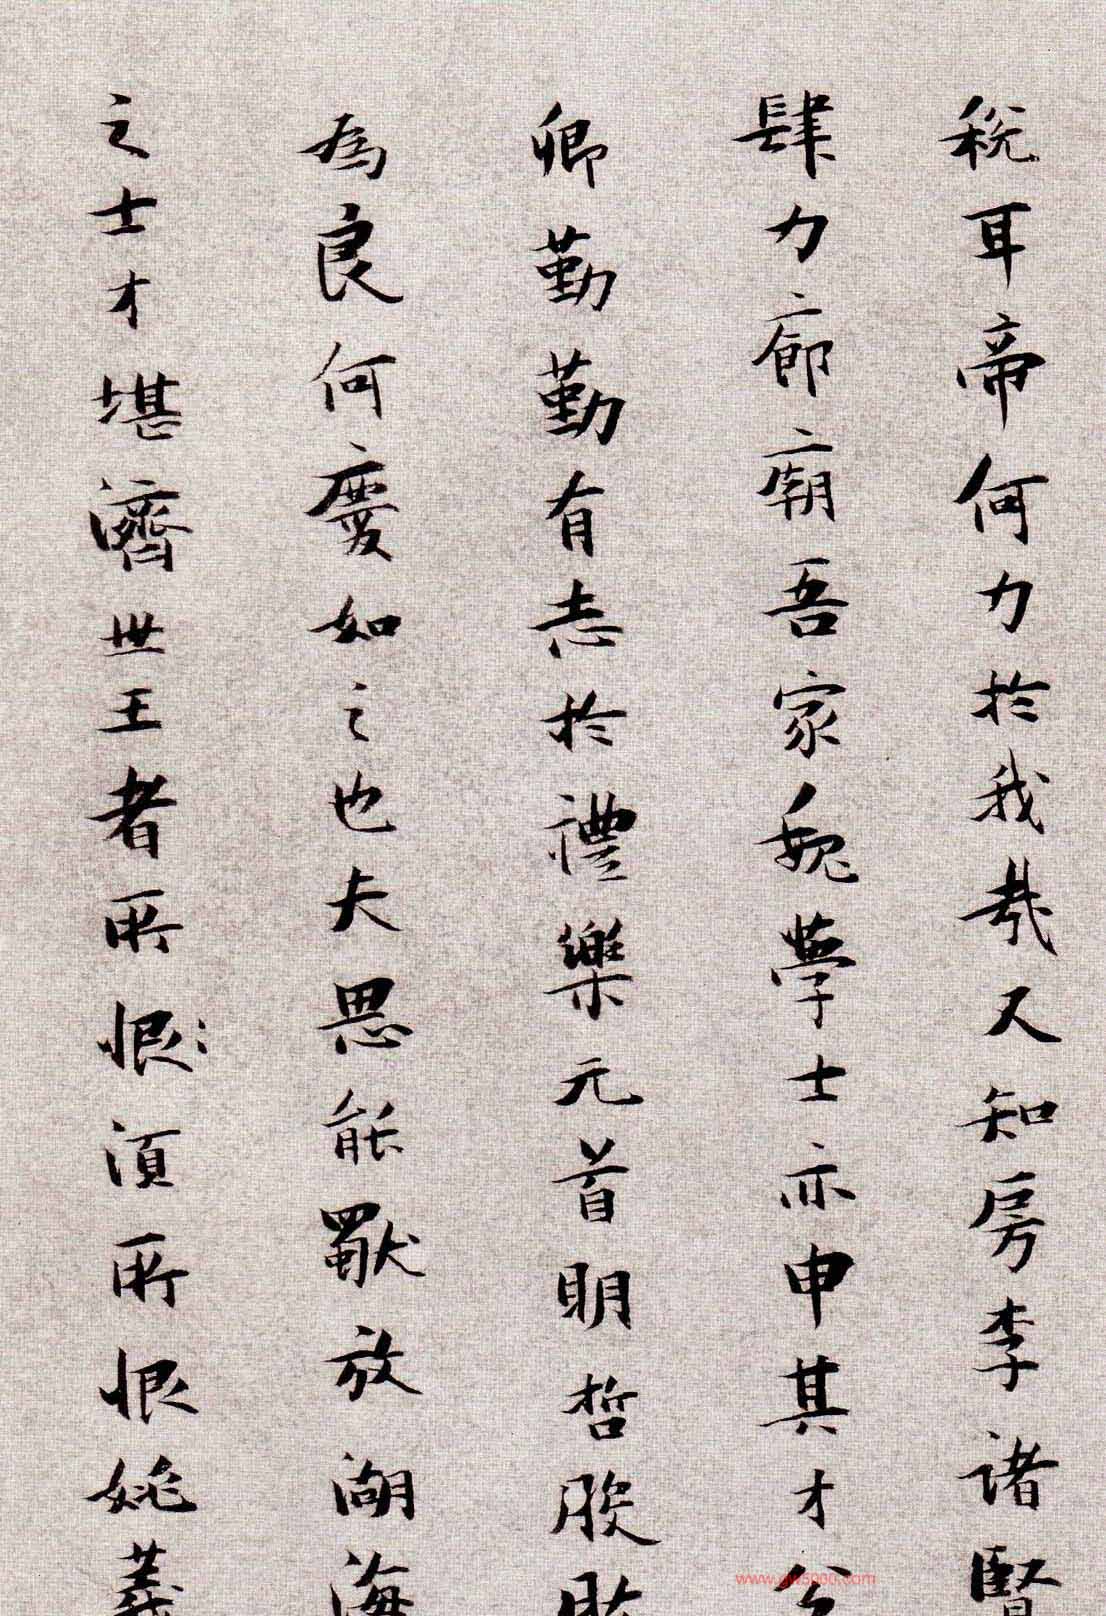 税耳帝何力於我哉又知房李諸賢
肆力廊廟吾家魏學士亦申其才公
卿勤勤有志於禮樂元首明哲股肱
為良何慶如之也夫思能獸放湖海
之士才堪濟世王者所恨恨須所恨姚義
www.gw3000.com